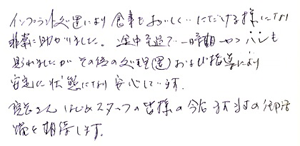 インプラント処置により食事もおいしくいただける様になり
非常に助かりました。途中経過で一時期
思われましたが その後の処理(置)および指導により
安定した状態になり安心しています。
院長さんはじめスタッフの皆様の今后ますますの御活
躍を期待します。